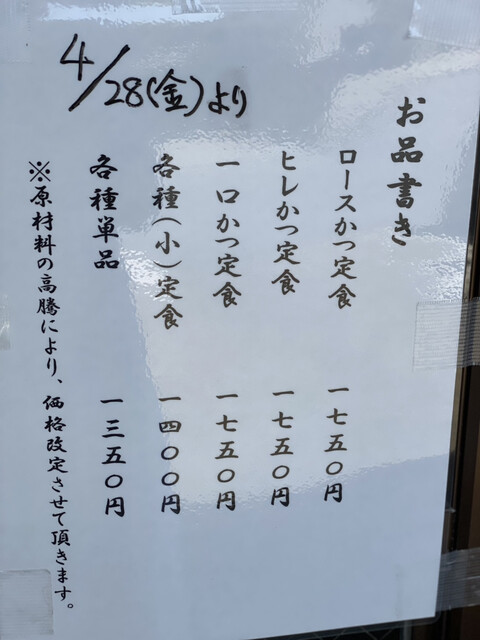 4/28(金)より
お品書き
ロースかつ定食 一七五〇円
ヒレかつ定食 一七五〇円
一口かつ定食 一七五〇円
各種(小)定食 一四〇〇円
各種単品 一三五〇円
※原材料の高騰により、価格改定させて頂きます。